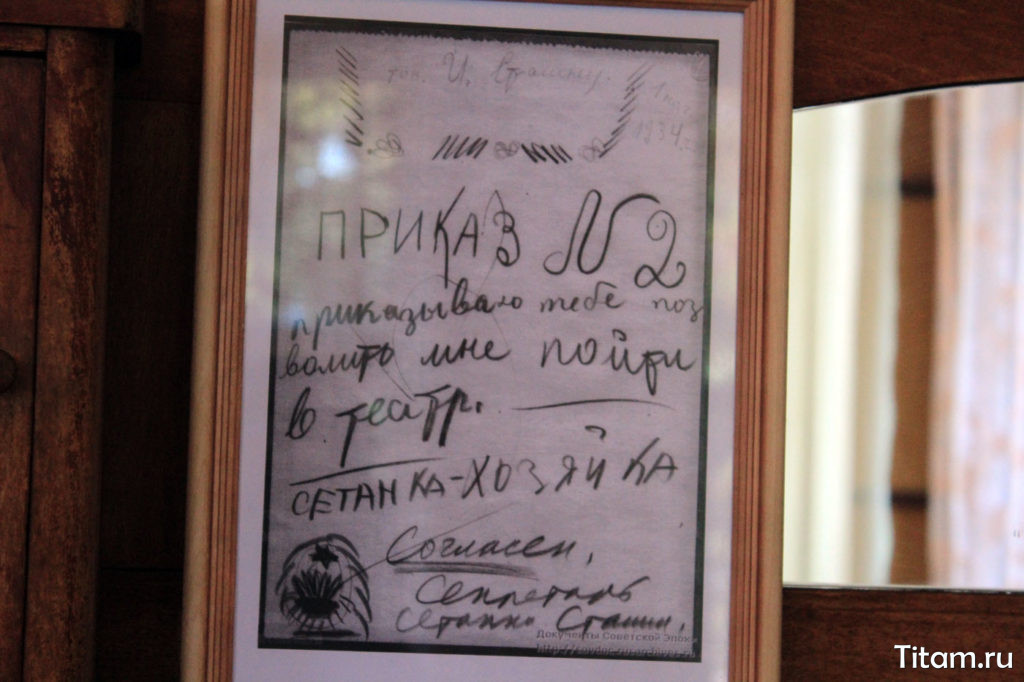 тов. И. Сталину.
1934
ПРИКАЗ N 2
приказываю тебе поз
волить мне пойти
в театр.
СЕТАНКА-ХОЗЯЙКА
Согласен,
Секретарь
Сетанки Сталин.
Документы Советской Эпохи
Titam.ru